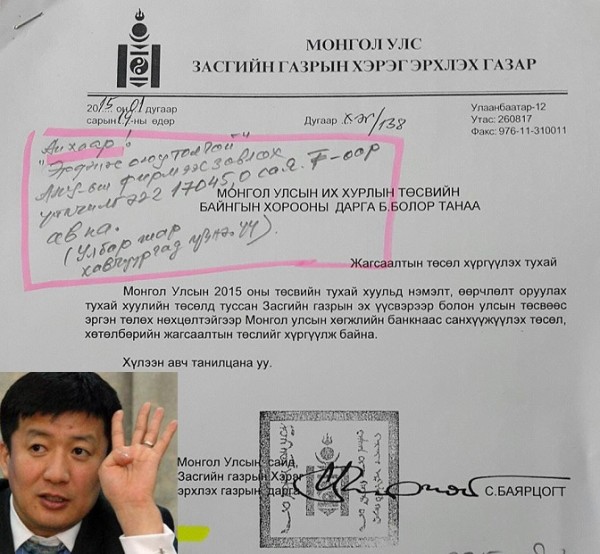 МОНГОЛ УЛС
ЗАСГИЙН ГАЗРЫН ХЭРЭГ ЭРХЛЭХ ГАЗАР
2015 оны 01 дугаар
сарын 19-ны өдөр
Дугаар ХЭГ/138
Улаанбаатар-12
Утас: 260817
Факс: 976-11-310011
Анхаар!
"Эрдэнэс оюутолгой"
АНУ-ын фирмээс зөвлөх
үйлчилгээ 17045,0 сая.₮-өөр
авна.
(Улбар шар
МОНГОЛ УЛСЫН ИХ ХУРЛЫН ТӨСВИЙН
БАЙНГЫН ХОРООНЫ ДАРГА Б.БОЛОР ТАНАА
Жагсаалтын төсөл хүргүүлэх тухай
Монгол Улсын 2015 оны төсвийн тухай хуульд нэмэлт, өөрчлөлт оруулах
тухай хуулийн төсөлд туссан Засгийн газрын эх үүсвэрээр болон улсын төсвөөс
эргэн төлөх нөхцөлтэйгээр Монгол улсын хөгжлийн банкнаас санхүүжүүлэх төсөл,
хөтөлбөрийн жагсаалтын төслийг хүргүүлж байна.
Хүлээн авч танилцана уу.
Монгол Улсын сайд,
Засгийн газрын Хэрэг
эрхлэх газрын дарга
С.БАЯРЦОГТ